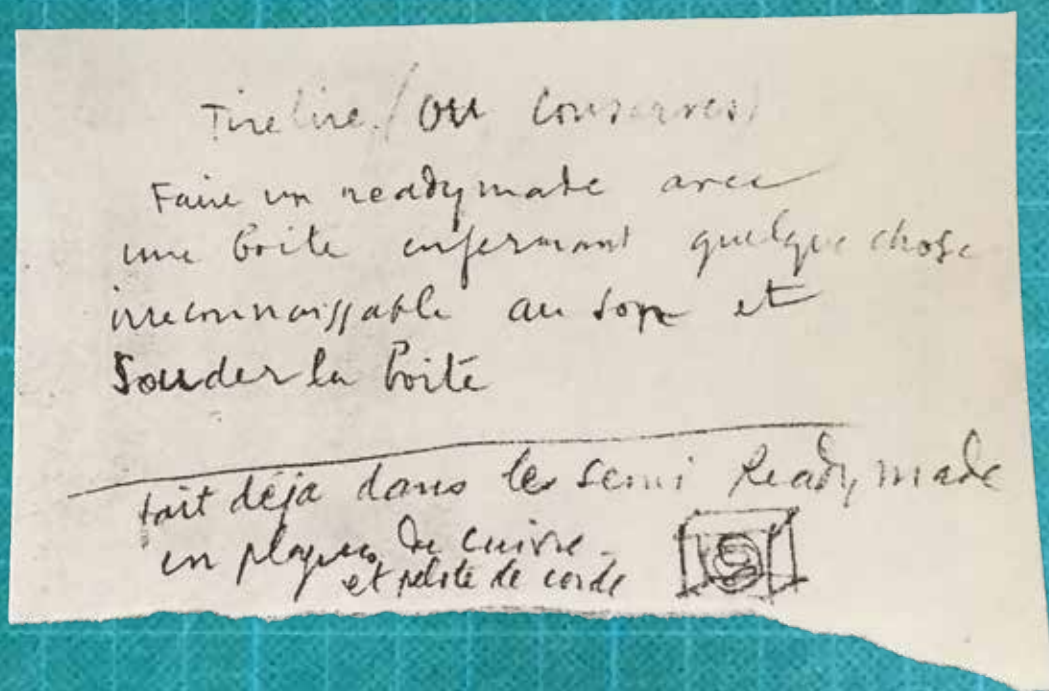 Tirelire (ou conserves)
Faire un readymade avec
une boite enfermant quelque chose
irreconnaissable au son et
souder la boite
fait déja dans le semi Readymade
en plaques de cuivre
et pelote de corde